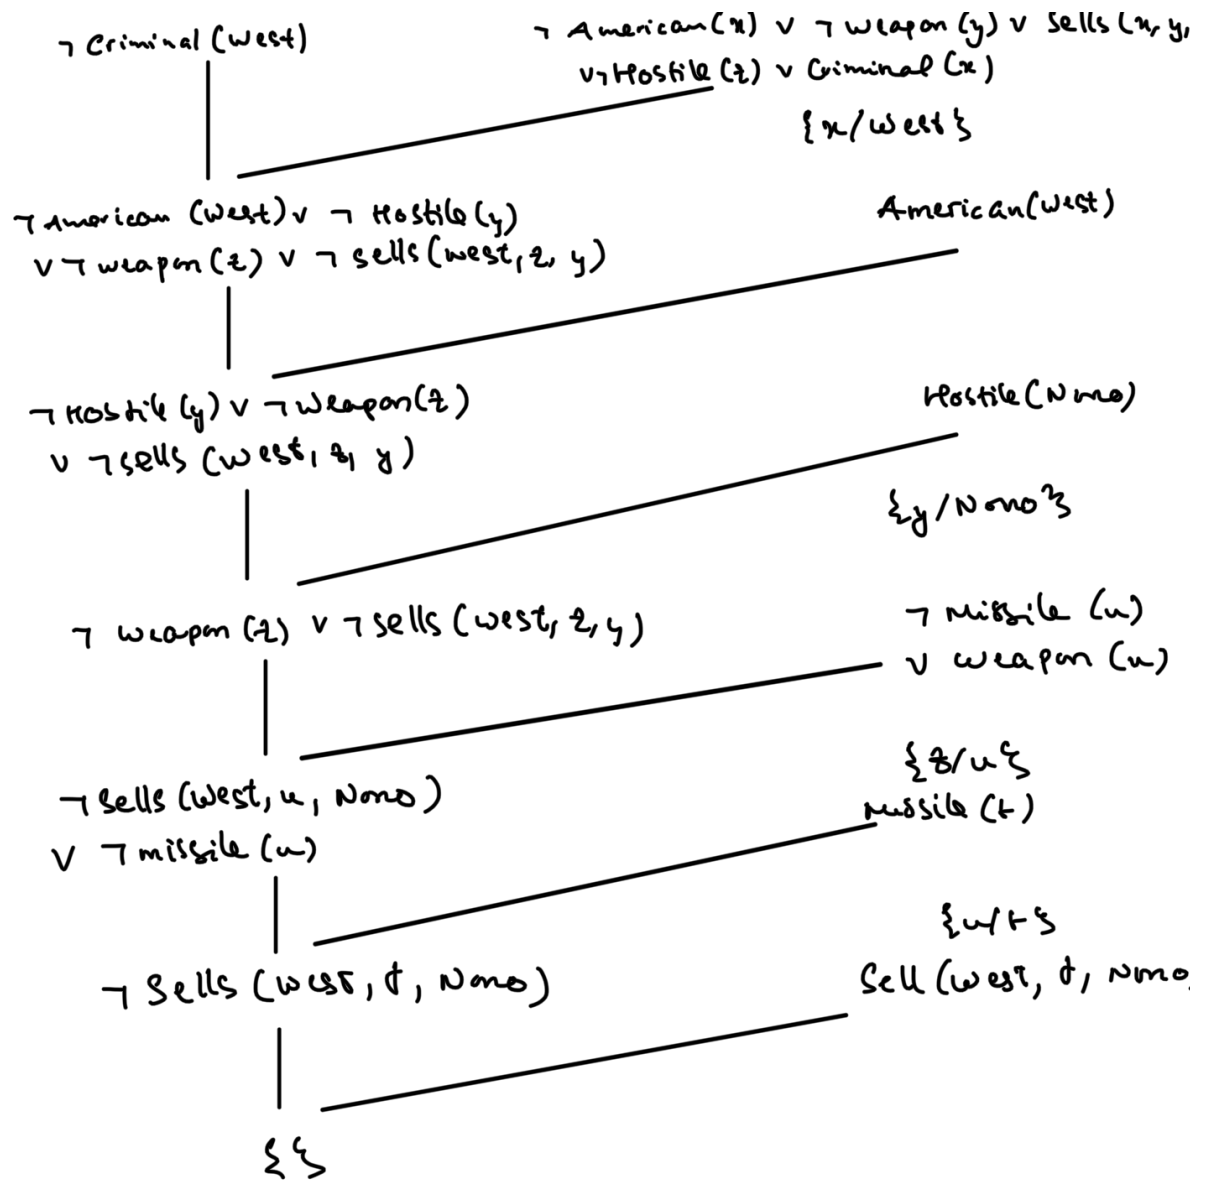 ¬ Criminal (West)
¬ American(x) ∨ ¬ Weapon (y) ∨ Sells (x, y,
∨¬Hostile (z) ∨ Criminal (x)
{x/West}
¬ American (West) ∨ ¬ Hostile (y)
∨ ¬ weapon (z) ∨ ¬ sells (west, z, y)
American(West)
¬ Hostile (y) ∨ ¬ Weapon(z)
∨ ¬ sells (west, z, y)
Hostile (Nono)
{y/Nono}
¬ Weapon (z) ∨ ¬ sells (west, z, y)
¬ Missile (u)
∨ weapon (u)
{z/u}
¬ sells (west, u, Nono)
∨ ¬ missile (u)
Missile (t)
{u/t}
¬ Sells (west, t, Nono)
Sell (west, t, Nono
{}